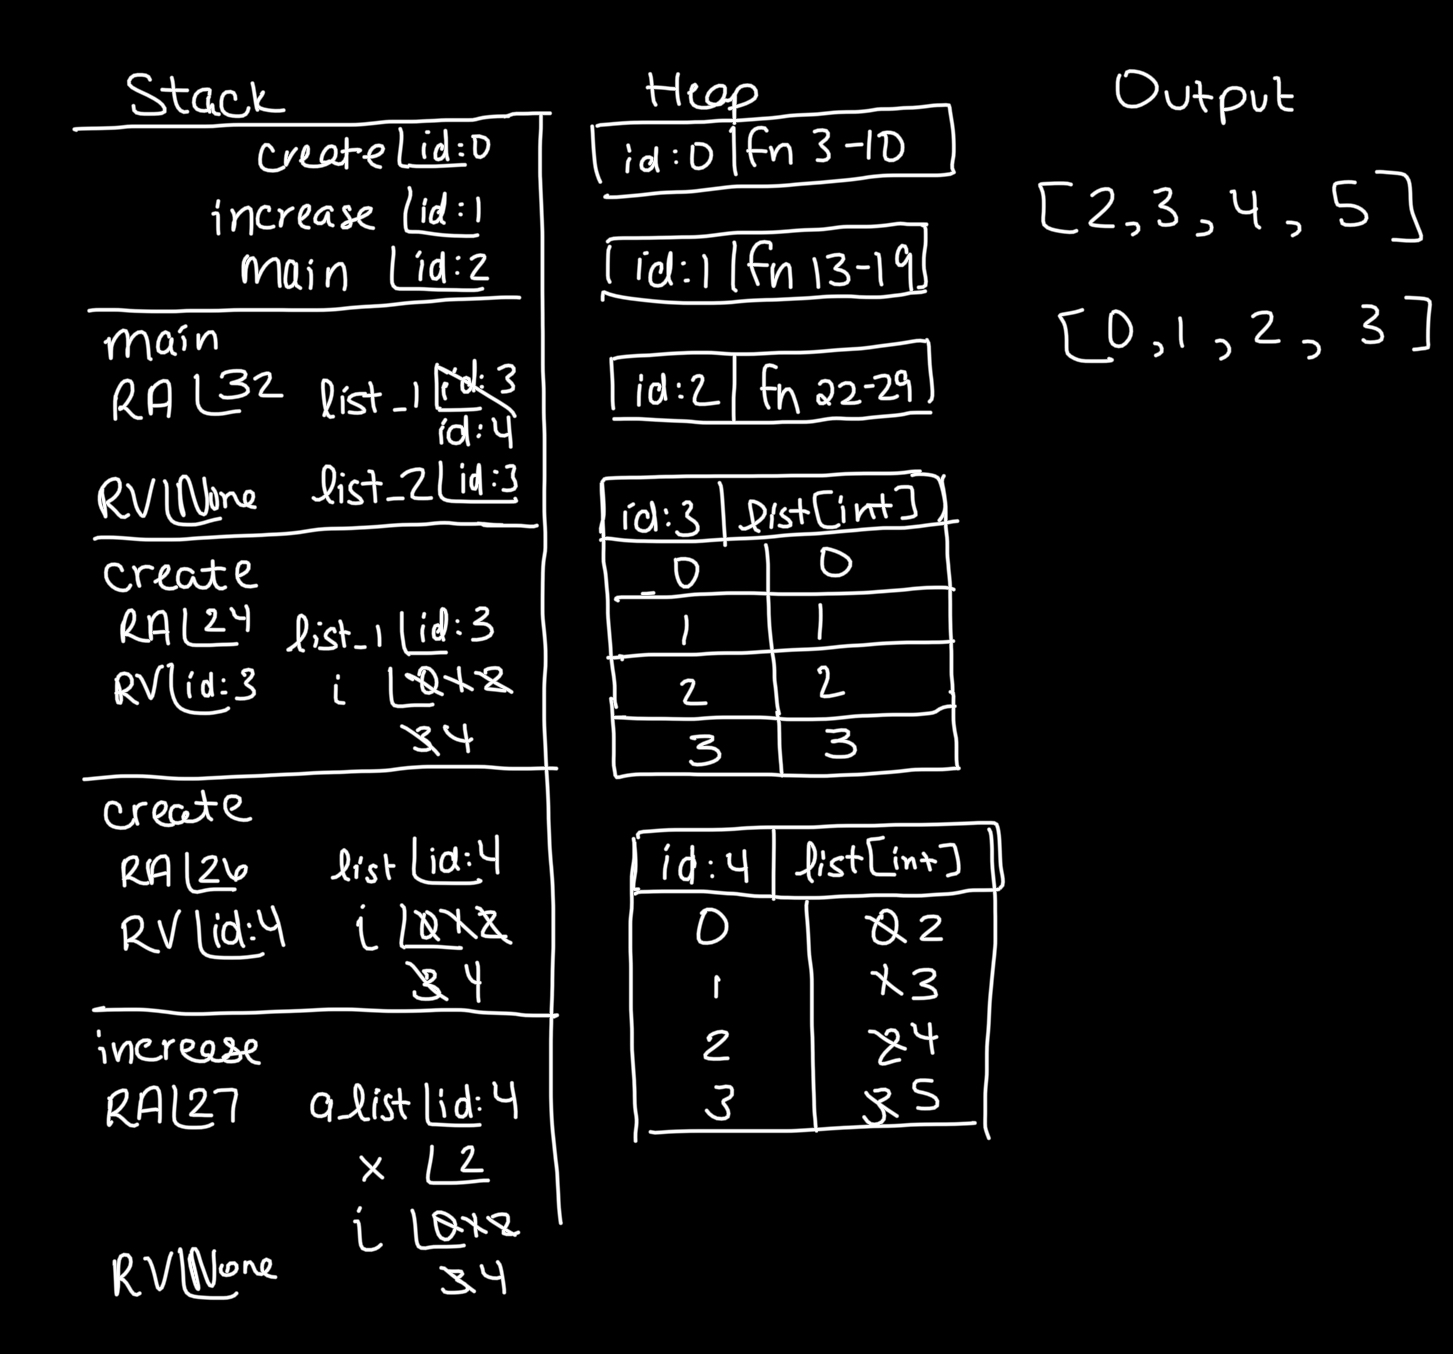 Stack
create id:0
increase id:1
main id:2
main
RA 32 list_1 id:3
id:4
RV None list_2 id:3
create
RA 24 list_1 id:3
RV id:3 i 0 1 2
3 4
create
RA 26 list id:4
RV id:4 i 0 1 2
3 4
increase
RA 27 alist id:4
x 2
i 0 1 2
RV None 3 4
Heap
id:0 fn 3-10
id:1 fn 13-19
id:2 fn 22-29
id:3 list[int]
0 0
1 1
2 2
3 3
id:4 list[int]
0 0 2
1 1 3
2 2 4
3 3 5
Output
[2,3,4,5]
[0,1,2,3]